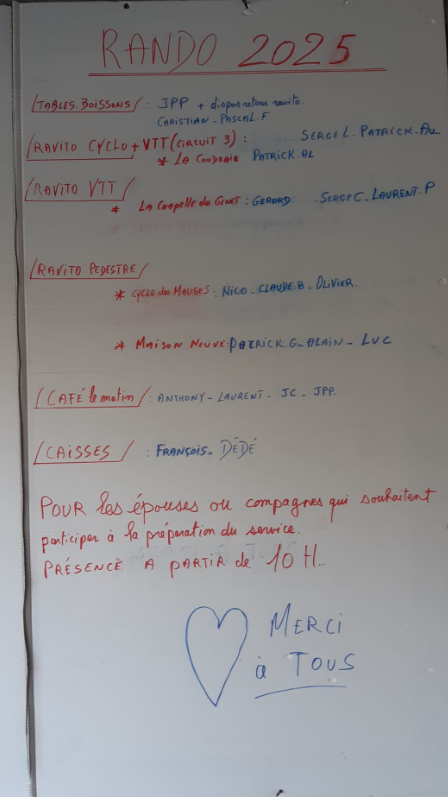 RANDO 2025
TABLES.BOISSONS/: JPP +
CHRISTIAN - PASCAL F
RAVITO CYCLO + VTT (CIRCUIT 3) : SERGE L. PATRICK.AU
* LA PATRICK.AL
RAVITO VTT
* LA Chapelle du Genêt : GERARD . SERGE C. LAURENT.P
RAVITO PEDESTRE/
* CYCLE des MAUGES : NICO - CLAUDE.B - OLIVIER.
* MAISON NEUVE: PATRICK.G - ALAIN - LUC
/CAFÉ le matin/ : ANTHONY - LAURENT - JC - JPP.
/CAISSES/ : FRANÇOIS - DÉDÉ
POUR les épouses ou compagnes qui souhaitent
participer à la préparation du service.
PRÉSENCE A PARTIR de 10H.
MERCI
à TOUS